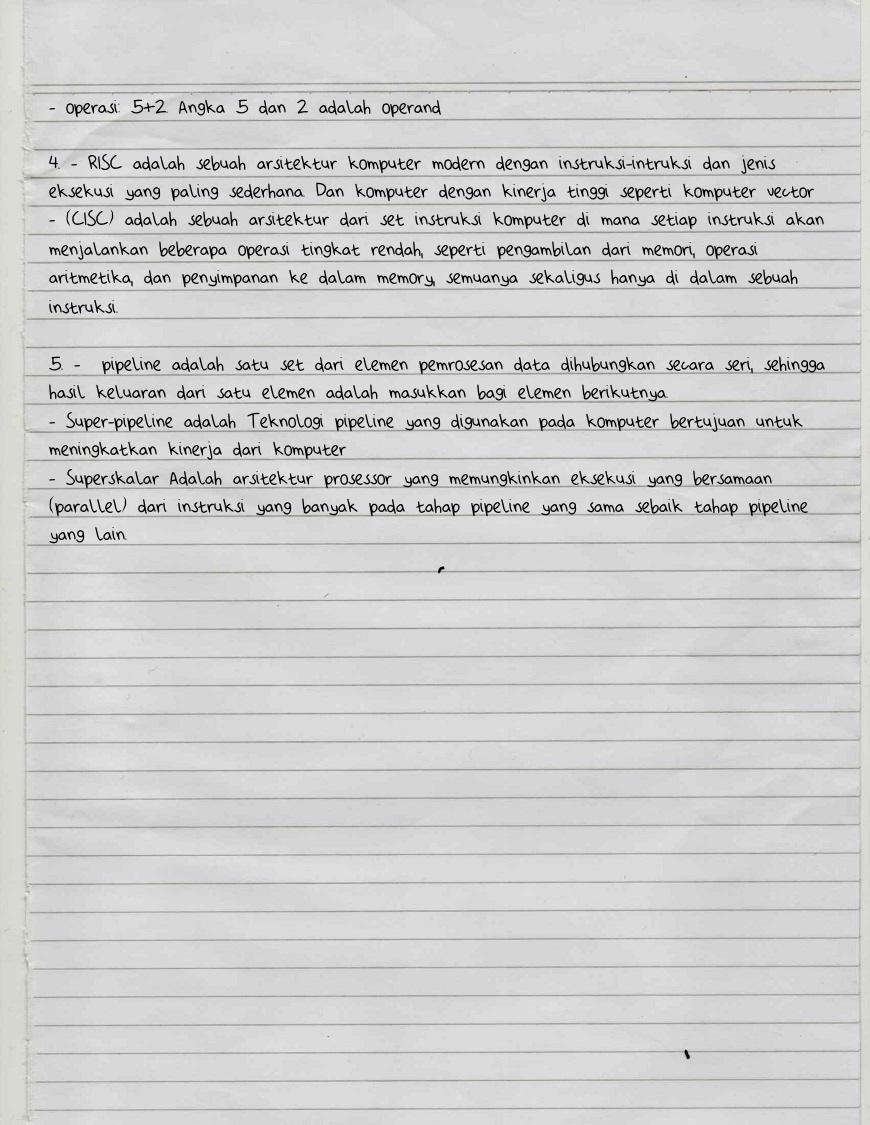 - operasi: 5+2 Angka 5 dan 2 adalah operand
4. - RISC adalah sebuah arsitektur komputer modern dengan instruksi-intruksi dan jenis
eksekusi yang paling sederhana. Dan komputer dengan kinerja tinggi seperti komputer vector
- (CISC) adalah sebuah arsitektur dari set instruksi komputer di mana setiap instruksi akan
menjalankan beberapa operasi tingkat rendah, seperti pengambilan dari memori, operasi
aritmetika, dan penyimpanan ke dalam memory, semuanya sekaligus hanya di dalam sebuah
instruksi.
5. - pipeline adalah satu set dari elemen pemrosesan data dihubungkan secara seri, sehingga
hasil keluaran dari satu elemen adalah masukkan bagi elemen berikutnya.
- Super-pipeline adalah Teknologi pipeline yang digunakan pada komputer bertujuan untuk
meningkatkan kinerja dari komputer
- Superskalar Adalah arsitektur prosessor yang memungkinkan eksekusi yang bersamaan
(parallel) dari instruksi yang banyak pada tahap pipeline yang sama sebaik tahap pipeline
yang lain.